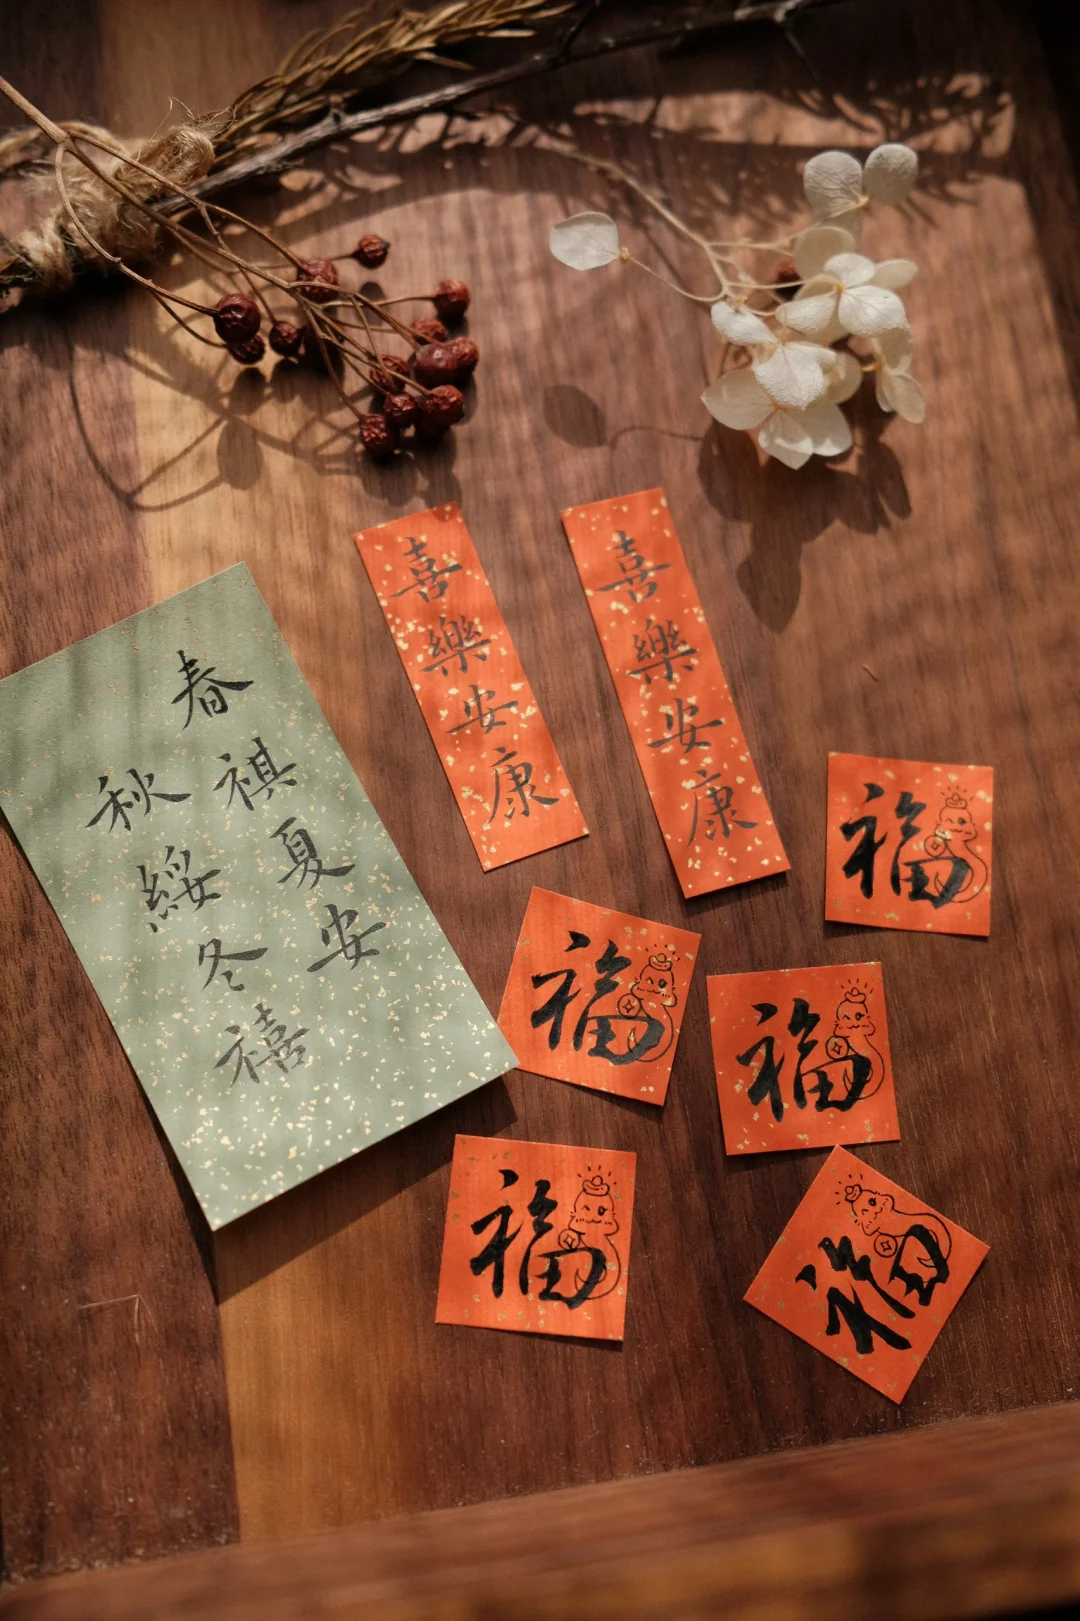 春祺夏安
秋綏冬禧
喜樂安康
喜樂安康
福
福
福
福
福